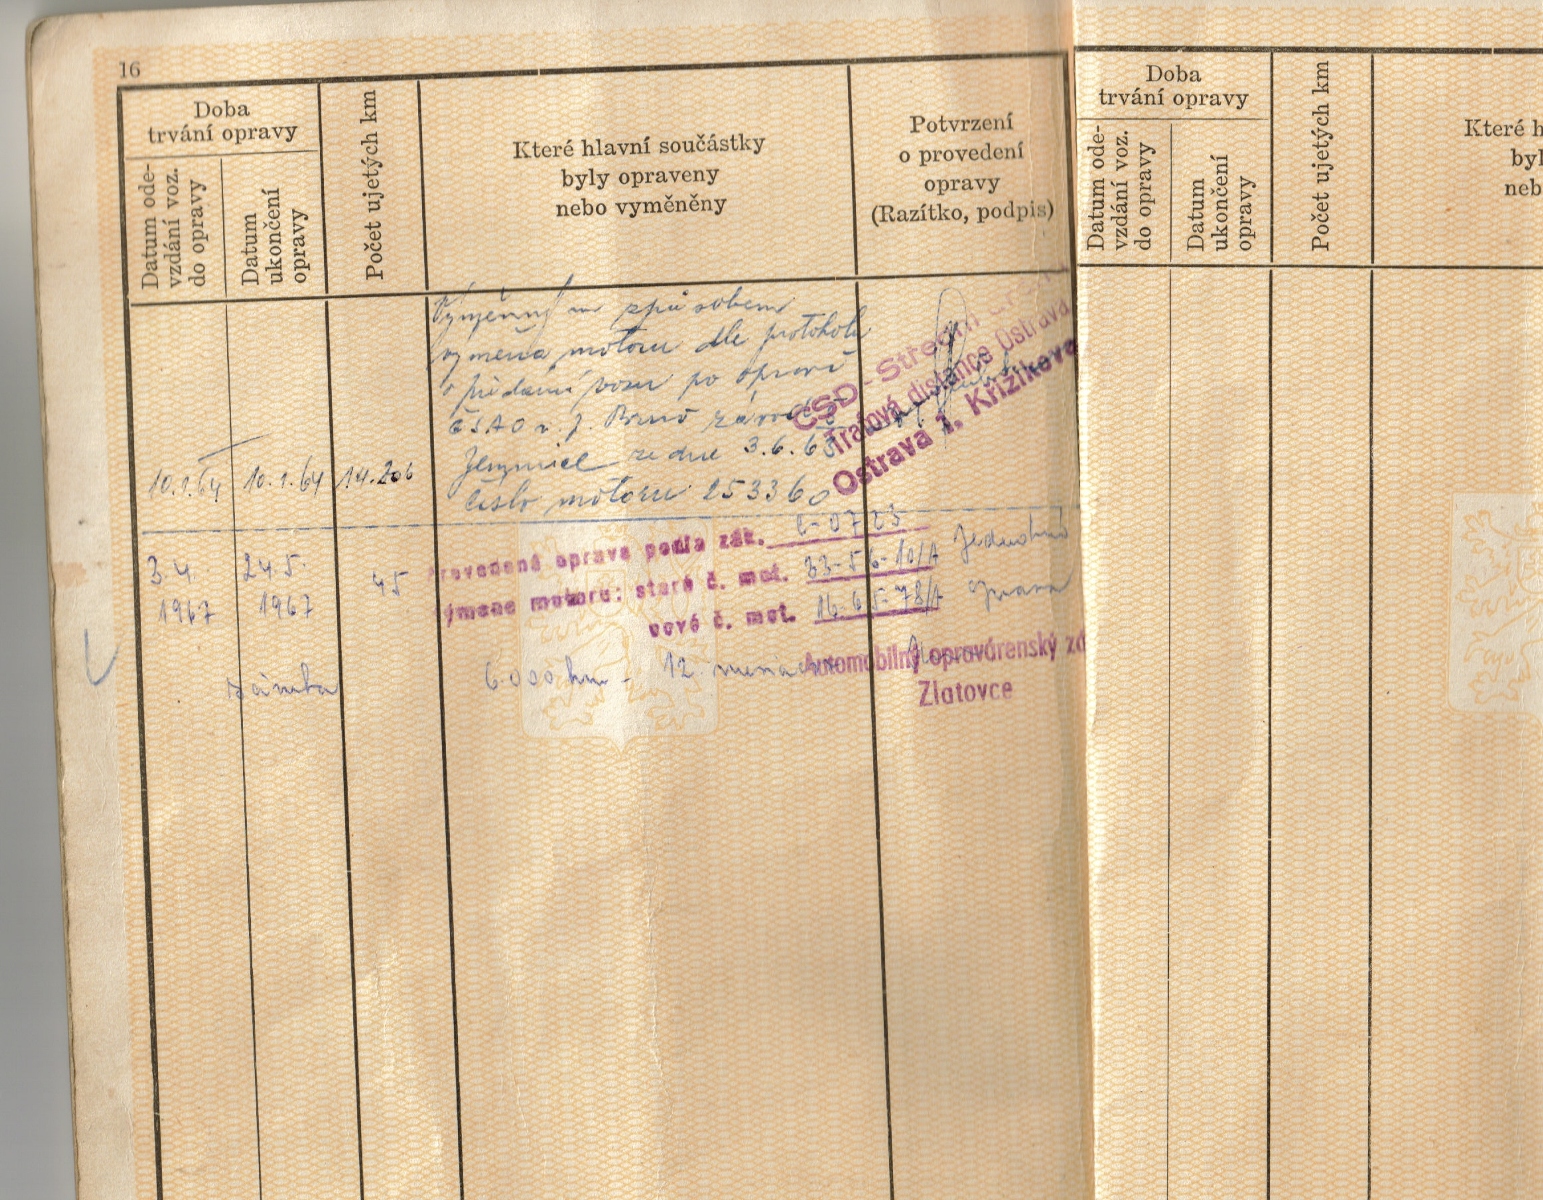 16
Doba
trvání opravy
Datum ode-
vzdání voz.
do opravy
Datum
ukončení
opravy
Počet ujetých km
Které hlavní součástky
byly opraveny
nebo vyměněny
Potvrzení
o provedení
opravy
(Razítko, podpis)
Výměnným způsobem
výměna motoru dle protokolu
o předání vozu po opravě
ČSAO n. p. Brno závod
ze dne 3.6.63
číslo motoru 253360
10.1.64 10.1.64 14.206
ČSD - Střední
Traťová distance Ostrava
Ostrava 1. Křižíkova
3.4. 1967
24.5. 1967
45
rovedená oprava podľa zák. 2-0723
ýmena motoru: staré č. mot. 33-56-10/A
nové č. mot. 16-65-78/A
Jednotná
oprava
záruka 6000 km - 12
Automobilný opravárenský zá
Zlatovce
Doba
trvání opravy
Datum ode-
vzdání voz.
do opravy
Datum
ukončení
opravy
Počet ujetých km
Které h
byl
neb